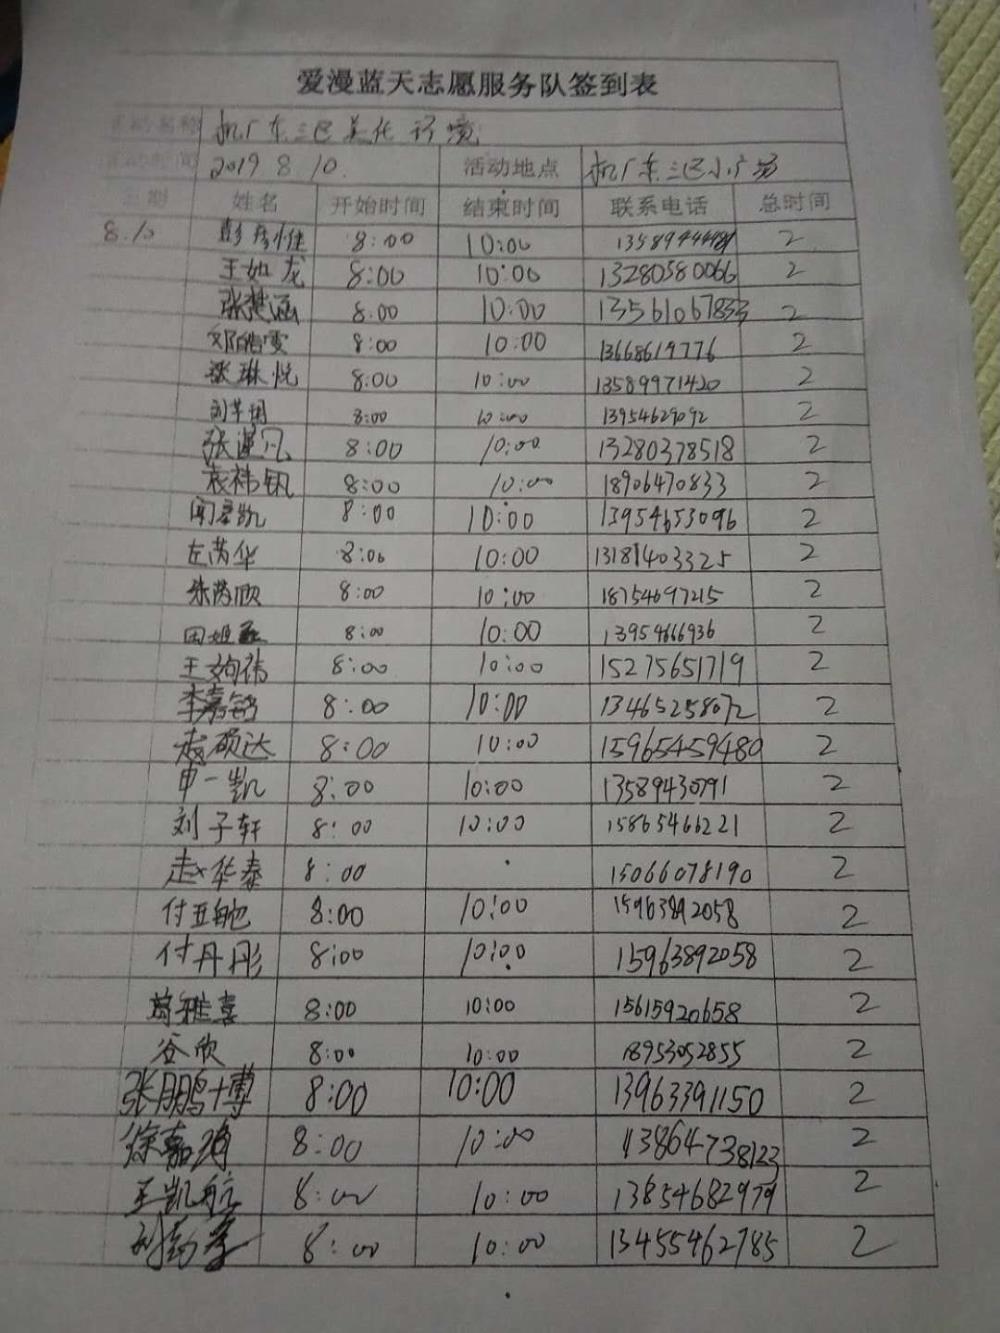 爱漫蓝天志愿服务队签到表
活动名称 机厂东三区美化环境
活动时间 2019 8 10. 活动地点 机厂东三区小广场
日期 姓名 开始时间 结束时间 联系电话 总时间
8.10 8:00 10:00 2
王如龙 8:00 10:00 13280580066 2
张楚涵 8:00 10:00 13561067833 2
邓皓雯 8:00 10:00 13668619776 2
张琳悦 8:00 10:00 13589971420 2
8:00 10:00 13954629092 2
张潇凡 8:00 10:00 13280378518 2
袁祎钒 8:00 10:00 18906470833 2
8:00 10:00 13954653096 2
左芮华 8:00 10:00 13181403325 2
朱芮欣 8:00 10:00 18754697215 2
8:00 10:00 13954666936 2
王姁祎 8:00 10:00 15275651719 2
李嘉铭 8:00 10:00 13465258072 2
赵硕达 8:00 10:00 15965459480 2
申一凯 8:00 10:00 13589430791 2
刘子轩 8:00 10:00 15865466221 2
赵华泰 8:00 15066078190 2
8:00 10:00 15963892058 2
付丹彤 8:00 10:00 15963892058 2
葛雅喜 8:00 10:00 15615920658 2
谷欣 8:00 10:00 18953052855 2
张鹏博 8:00 10:00 13963391150 2
徐嘉鸿 8:00 10:00 13864738123 2
王凯航 8:00 10:00 13854682979 2
8:00 10:00 13455462785 2